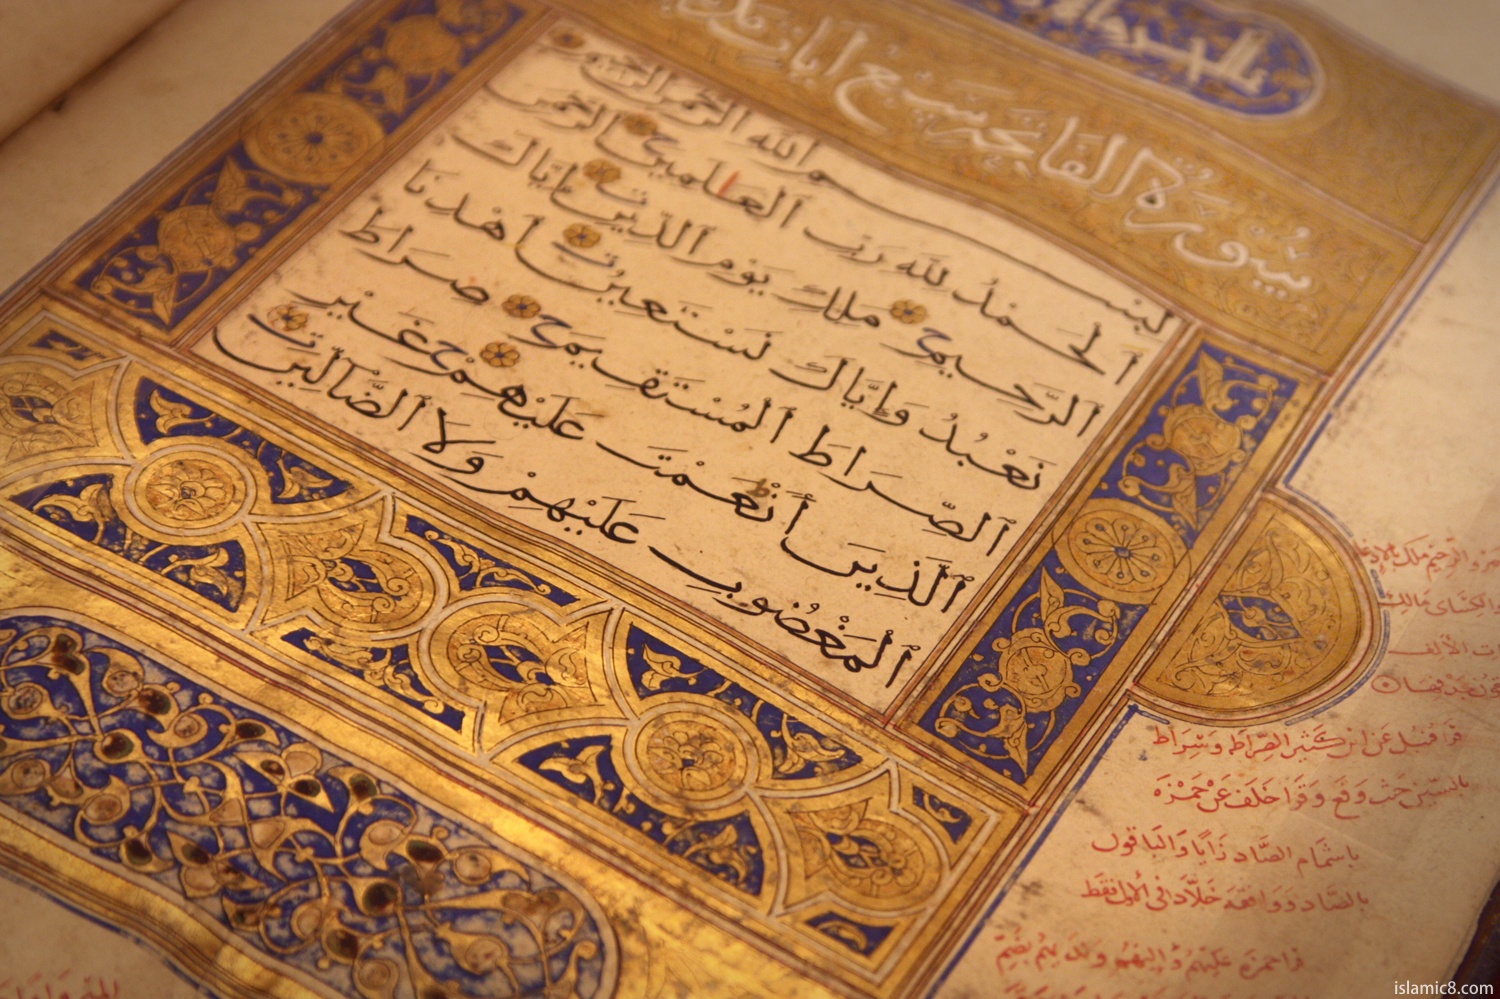 سُورَةُ الفَاتِحَةِ سَبْع آيات
بِسْمِ ٱللَّهِ ٱلرَّحْمَنِ ٱلرَّحِيمِ
ٱلْحَمْدُ لِلَّهِ رَبِّ ٱلْعَالَمِينَ ٱلرَّحْمَنِ
ٱلرَّحِيمِ مَلِكِ يَوْمِ ٱلدِّينِ إِيَّاكَ
نَعْبُدُ وَإِيَّاكَ نَسْتَعِينُ ٱهْدِنَا
ٱلصِّرَاطَ ٱلْمُسْتَقِيمَ صِرَاطَ
ٱلَّذِينَ أَنْعَمْتَ عَلَيْهِمْ غَيْرِ
ٱلْمَغْضُوبِ عَلَيْهِمْ وَلَا ٱلضَّالِّينَ
قرا قنبل عن ابن كثير الصراط وسراط
بالسين حيث وقع وقرا خلف عن حمزة
باشمام الصاد زايا والباقون
بالصاد ووافقه خلاد في الاول فقط
قرا حمزة عليهم واليهم ولديهم بضم
islamic8.com